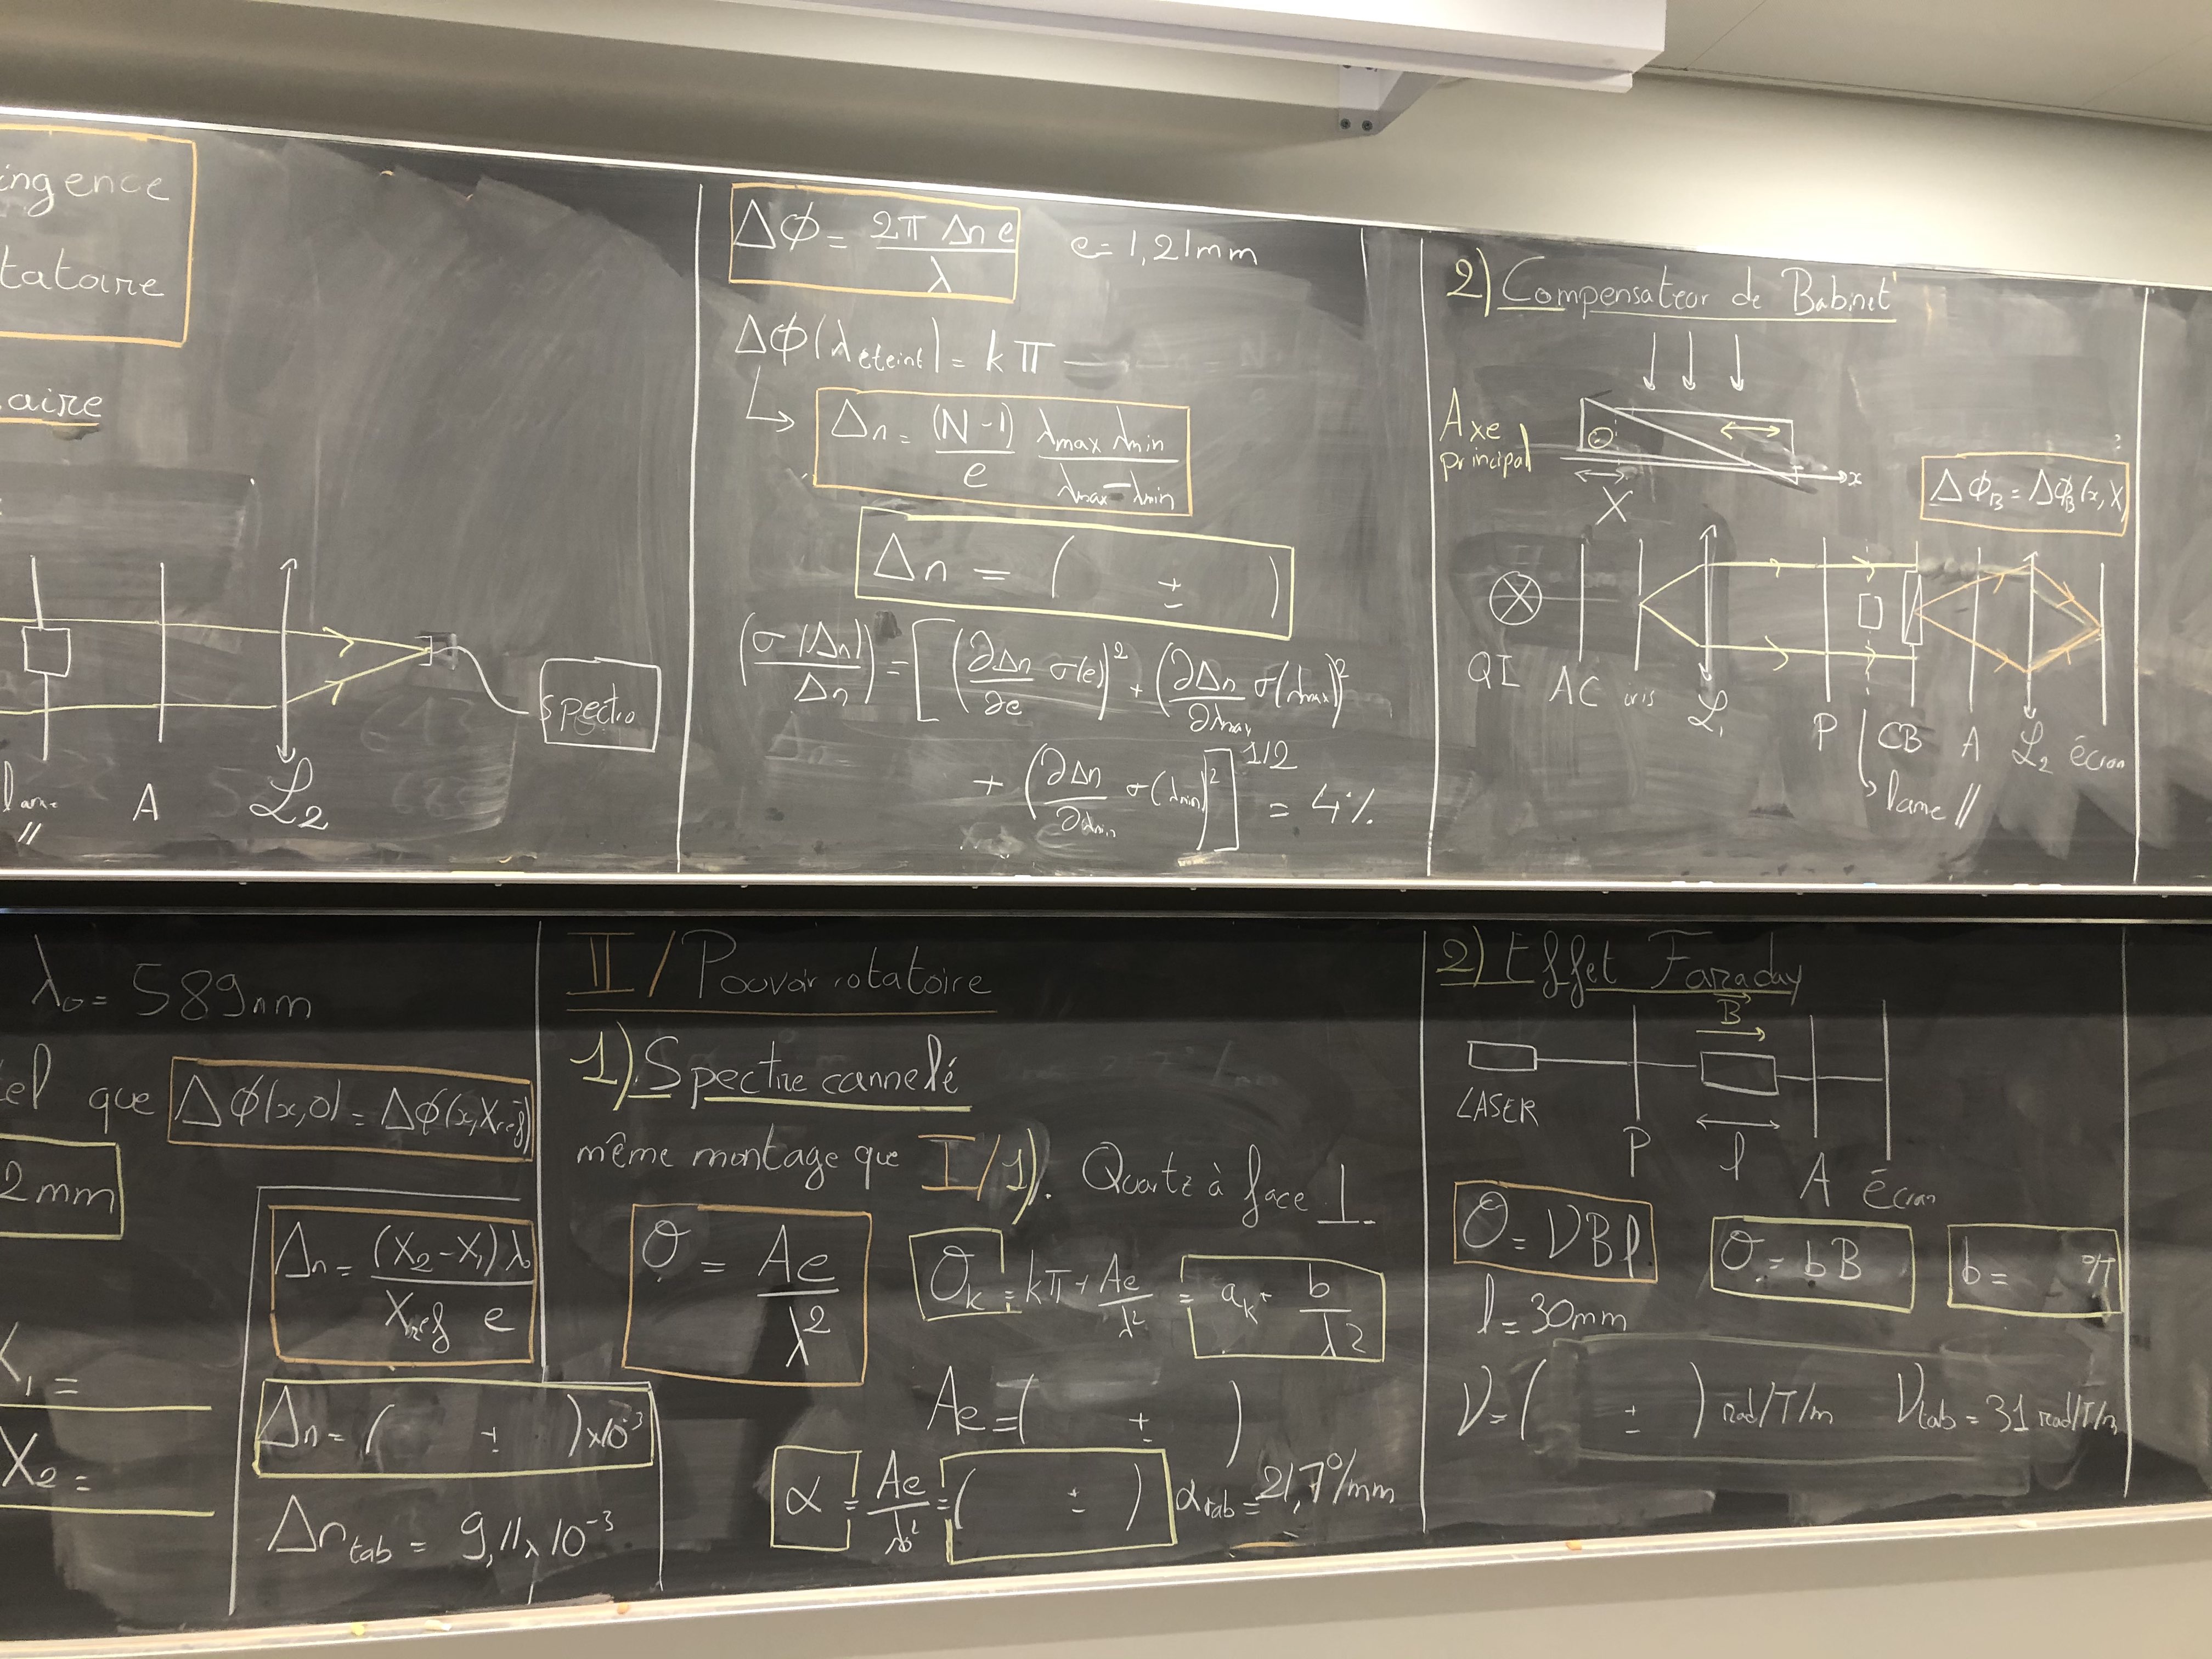 ingence
tatoire
aire
lame
//
A
L2
Spectro
Δϕ = 2π Δn e / λ
e = 1,21mm
Δϕ(λéteint) = kπ
Δn = (N-1)/e λmax λmin / (λmax - λmin)
Δn = ( ± )
(σ(Δn)/Δn) = [ (∂Δn/∂e σ(e))² + (∂Δn/∂λmax σ(λmax))²
+ (∂Δn/∂λmin σ(λmin))² ]^1/2 = 4%
2) Compensateur de Babinet
Axe
principal
x
X
ΔϕB = ΔϕB(x, X)
QI AC iris L1 P CB A L2 écran
lame //
λ0 = 589nm
tel que Δϕ(x,0) = Δϕ(x,Xréf)
2mm
Δn = (X2-X1)λ / Xréf e
X1 =
X2 =
Δn = ( ± )x10⁻³
Δntab = 9,11 x 10⁻³
II / Pouvoir rotatoire
1) Spectre cannelé
même montage que I/1). Quartz à face ⊥
θ = Ae / λ²
θk = kπ + Ae/λ² = ak + b/λ²
Ae = ( ± )
α = Ae/λ0² = ( ± ) αtab = 21,7°/mm
2) Effet Faraday
B
LASER
P
l
A
écran
θ = VBl
θ = bB
b = °/T
l = 30mm
V = ( ± ) rad/T/m Vtab = 31 rad/T/m